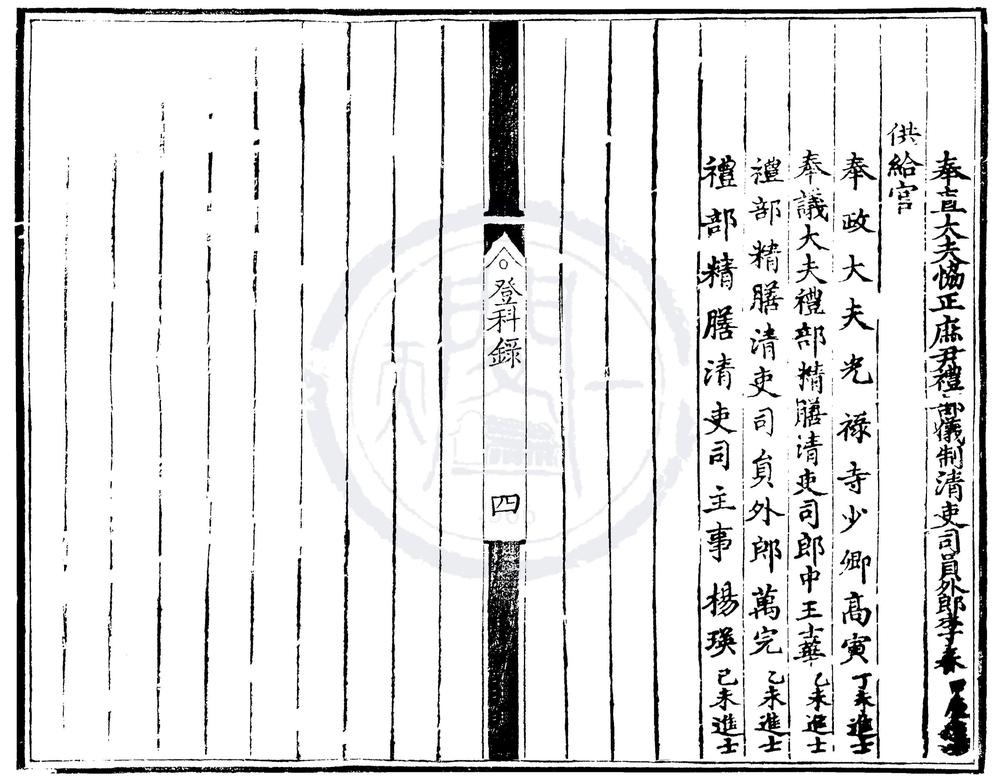 奉直大夫協正庶尹禮部儀制清吏司員外郎李春
供給官
奉政大夫光祿寺少卿高寅丁未進士
奉議大夫禮部精膳清吏司郎中王華乙未進士
禮部精膳清吏司員外郎萬完乙未進士
禮部精膳清吏司主事楊瑛己未進士
登科錄
四